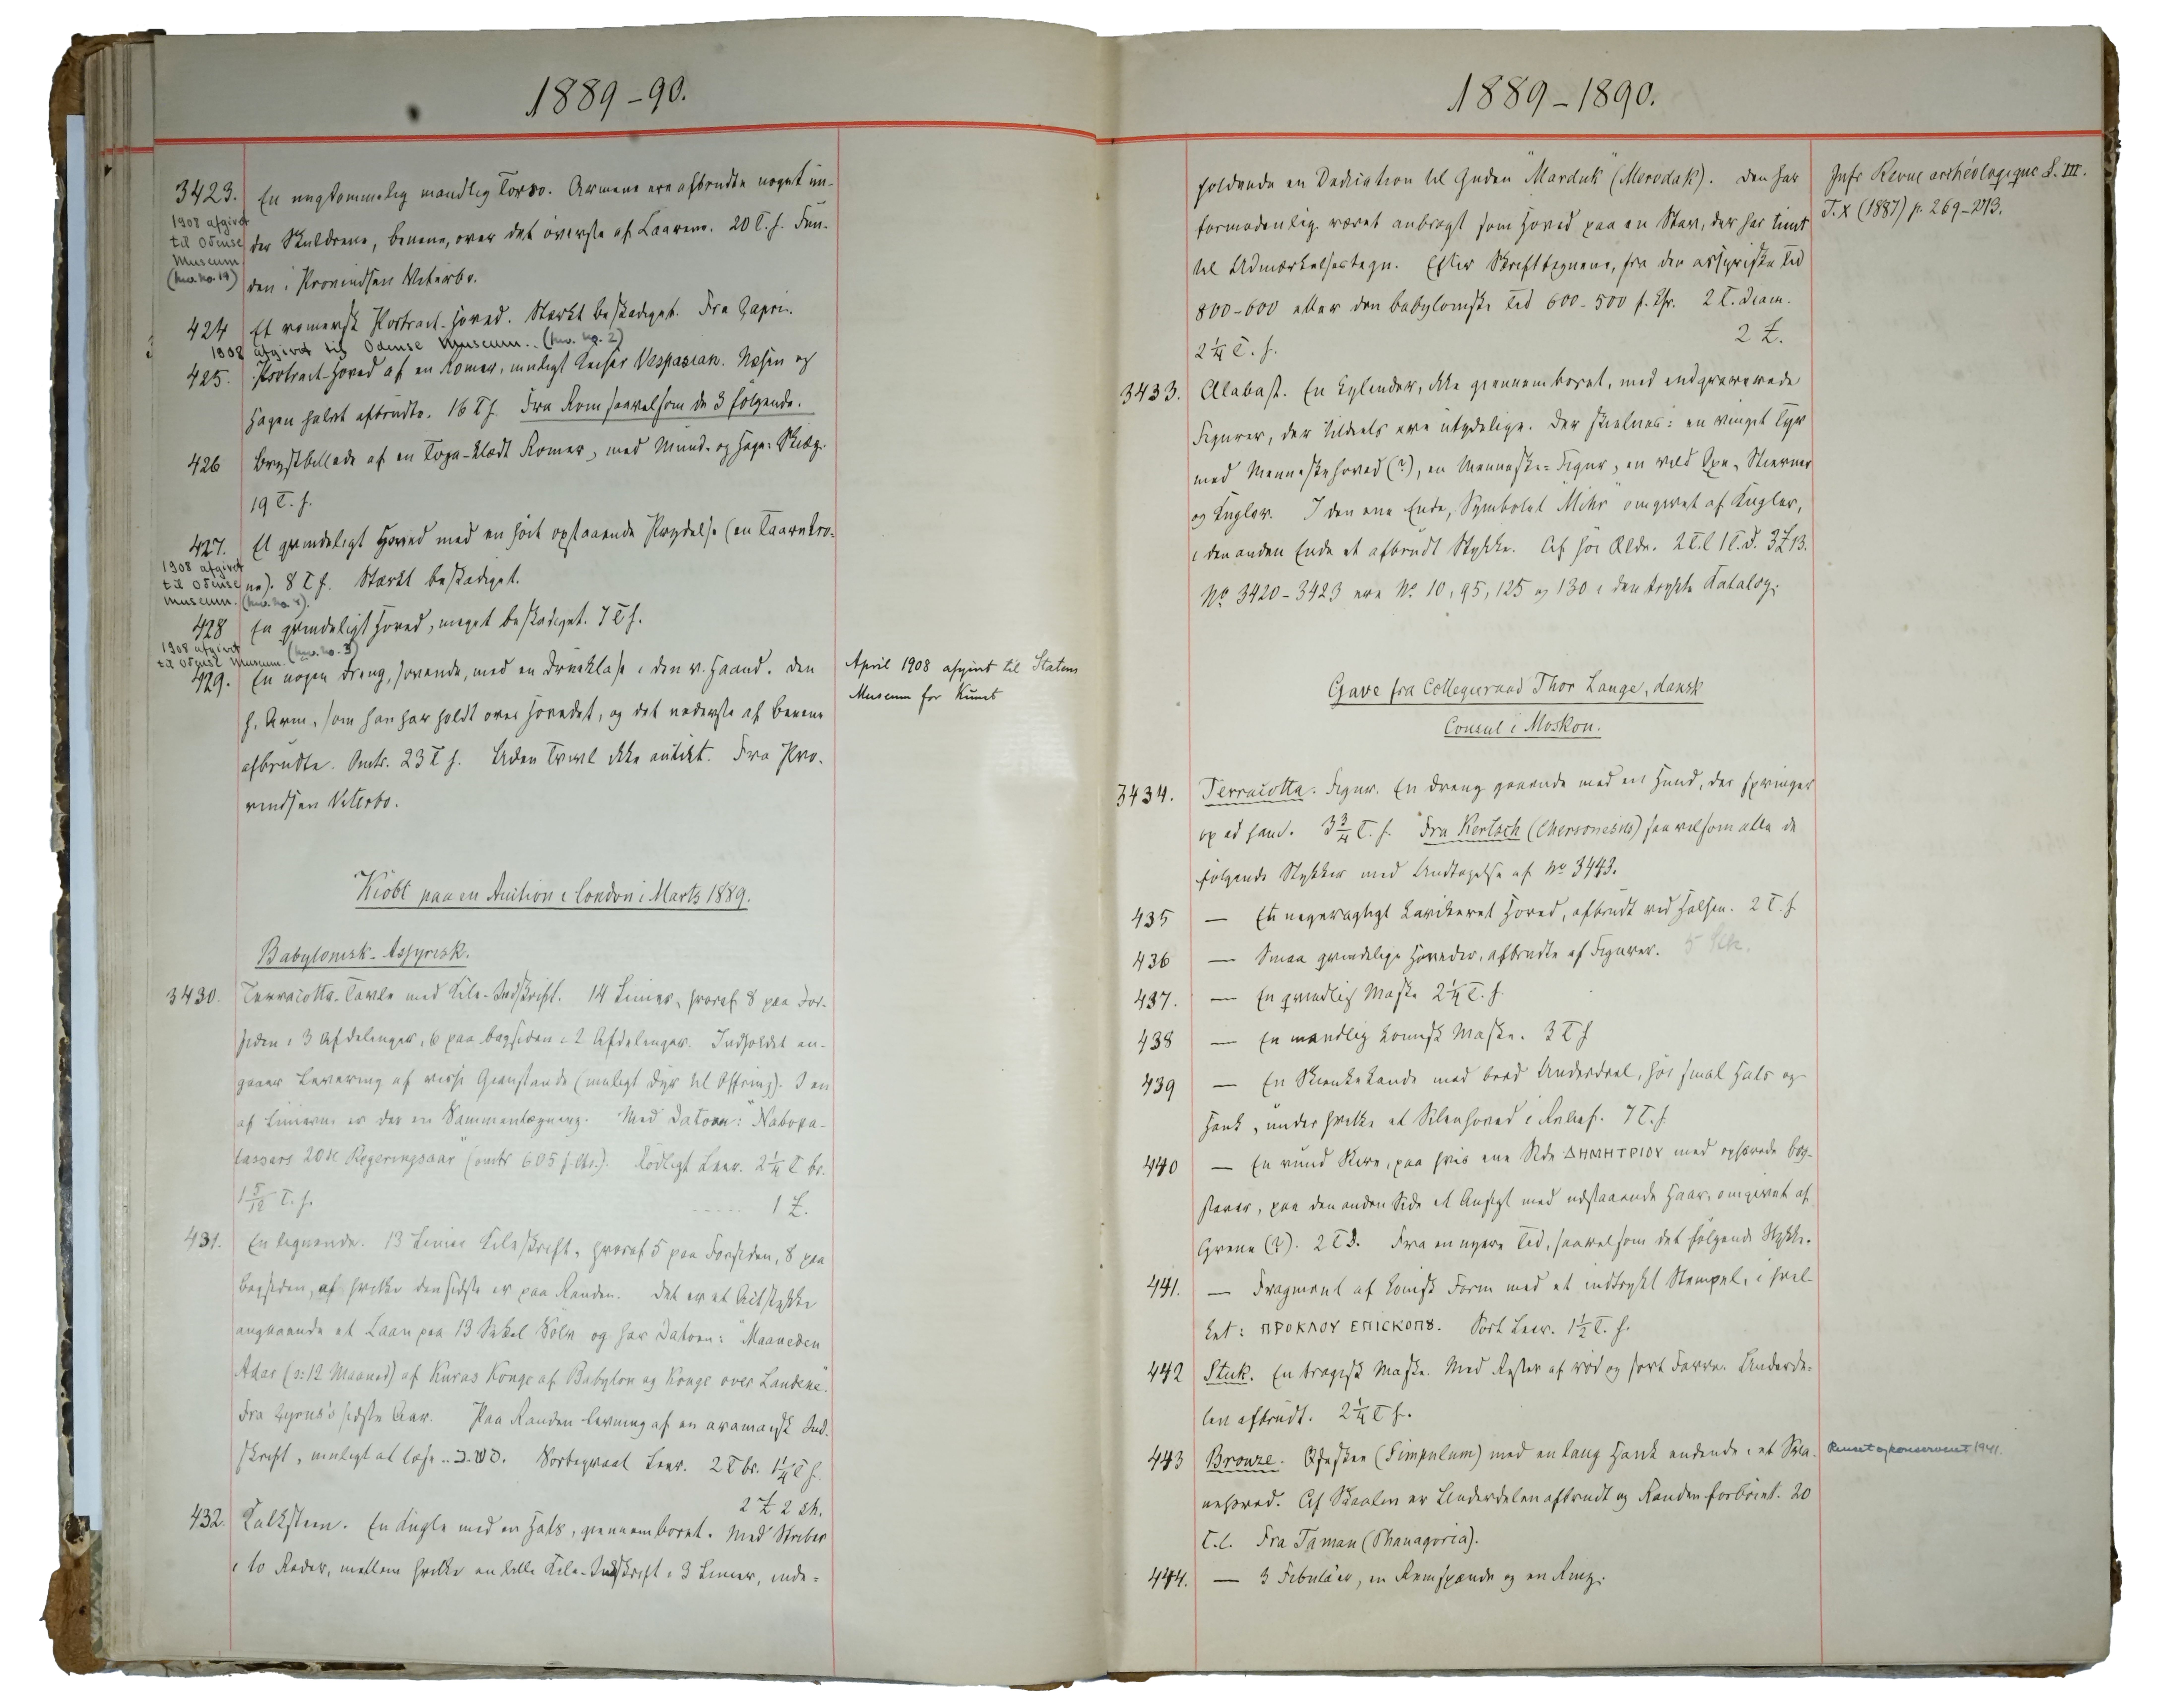 1889-90.
3423. En ungdommelig mandlig Torso. Armene ere afbrudte noget un-
1908 afgivet
til Odense
Museum
(Inv. no. 19)
der Skuldrene, benene, over det överste af Laarene. 20 T. h. Fun-
den i Provindsen Viterbo.
424 Et romersk Portrait-Hoved. Stærkt beskadiget. Fra Capri.
1908 afgivet til Odense Museum. (Inv. no. 2)
425. Portrait-Hoved af en Romer, muligt Keiser Vespasian. Næsen og
Hagen halvt afbrudte. 16 T h. Fra Rom saavelsom de 3 fölgende.
426 Brystbillede af en Toga-klædt Romer, med Mund- og Hage-Skiæg.
19 T. h.
427. Et qvindeligt Hoved med en höit opstaaende Prydelse (en Taarnkro-
1908 afgivet
til Odense
Museum. (Inv. no. 4).
ne). 8 T h. Stærkt beskadiget.
428 En qvindeligt Hoved, meget beskadiget. 7 T h.
1908 afgivet
til Odense Museum. (Inv. no. 3)
429. En nogen Dreng, sovende, med en Drueklase i den v. Haand. Den
h. Arm, som han har holdt over Hovedet, og det nederste af Benene
afbrudte. Omtr. 23 T h. Uden Tvivl ikke antikt. Fra Pro-
vindsen Viterbo.
April 1908 afgivet til Statens
Museum for Kunst
Kiöbt paa en Auction i London i Marts 1889.
Babylonisk-Assyrisk.
3430. Terracotta-Tavle med Kile-Indskrift. 14 Linier, hvoraf 8 paa For-
siden i 3 Afdelinger, 6 paa bagsiden i 2 Afdelinger. Indholdet an-
gaaer Levering af visse Gienstande (muligt Dyr til Offring). I en
af Linierne er der en Sammenlægning. Med Datoen: "Nabopa-
lassars 20de Regeringsaar" (omtr 605 f. Chr.). Rödligt Leer. 2 1/4 T br.
1 5/12 T. h. 1 £.
431. En lignende. 13 Linier Kileskrift, hvoraf 5 paa Forsiden, 8 paa
Bagsiden, af hvilke den sidste er paa Randen. Det er et Actstykke
angaaende et Laan paa 13 Sekel Sölv og har Datoen: "Maaneden
Adar (ɔ: 12 Maaned) af Kuras Konge af Babylon og Konge over Landene".
Fra Cyrus's sidste Aar. Paa Randen levning af en aramaisk Ind-
skrift, muligt at læse .. Sortegraat Leer. 2 T br. 1 1/4 T h.
2 £ 2 sh.
432. Kalksteen. En Kugle med en Hals, gennemboret. Med Striber
i to Rader, mellem hvilke en lille Kile-Indskrift i 3 Linier, inde-
1889-1890.
holdende en Dedication til Guden "Marduk" (Merodak). Den har
formodenlig været anbragt som Hoved paa en Stav, der har tient
til Udmærkelsestegn. Efter Skrifttegnene, fra den assyriske Tid
800-600 eller den babylonske Tid 600-500 f. Chr. 2 T. Diam.
2 1/4 T. h. 2 £.
Jnfr Revue archéologique S. III.
T. X (1887) p. 269-273.
3433. Alabast. En Cylinder, ikke giennemboret, med indgraverede
Figurer, der tildeels ere utydelige. Der skielnes: en vinget Tyr
med Menneskehoved (?), en Menneske-Figur, en vild Oxe, Stierner
og Kugler. I den ene Ende, Symbolet "Mihr" omgivet af Kugler,
i den anden Ende et afbrudt Stykke. Af höi Ælde. 2 T. l 1 T. d. 3 £ 13.
No 3420-3423 ere No 10, 95, 125 og 130 i den trykte Katalog.
Gave fra Collegieraad Thor Lange, dansk
Consul i Moskou.
3434. Terracotta. Figur. En Dreng gaaende med en Hund, der springer
op ad ham. 3 3/4 T. h. Fra Kertsch (Chersonesus) saavelsom alle de
fölgende Stykker med Undtagelse af No 3443.
435 — Et negeragtigt Karikeret Hoved, afbrudt ved Halsen. 2 T. h
436 — Smaa qvindelige Hoveder, afbrudte af Figurer. 5 Stk.
437. — En qvindlig Maske 2 1/4 T. h.
438 — En mandlig komisk Maske. 3 T h
439 — En Skienkekande med bred Underdeel, höi smal Hals og
Hank, under hvilke et Silenhoved i Relief. 7 T. h.
440 — En rund Skive, paa hvis ene Side ΔΗΜΗΤΡΙΟΥ med ophöiede bog-
staver, paa den anden Side et Ansigt med udstaaende Haar, omgivet af
Grene (?). 2 T D. Fra en nyere Tid, saavelsom det fölgende Stykke.
441. — Fragment af konisk Form med et indtrykt Stempel, i hvil-
ket: ΠΡΟΚΛΟΥ ΕΠΙϹΚΟΠȢ. Sort Leer. 1 1/2 T. h.
442 Stuk. En tragisk Maske. Med Rester af röd og sort Farve. Underde-
len afbrudt. 2 1/4 T h.
443 Bronze. Öseskee (Simpulum) med en lang Hank endende i et Sva-
nehoved. Af Skaalen er Underdelen afbrudt og Randen forböiet. 20
T. l. Fra Taman (Phanagoria).
Renset og konserveret 1941.
444. — 3 Fibulaer, en Remspænde og en Ring.